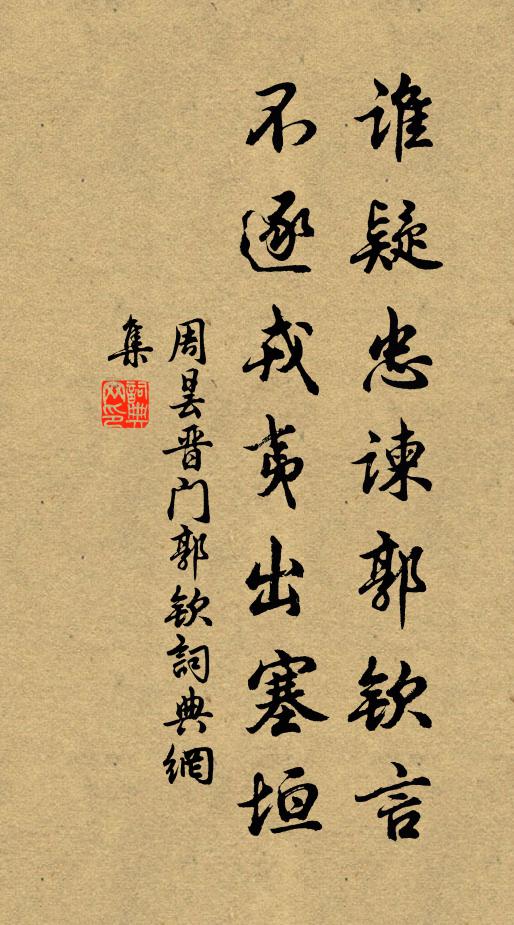 谁疑忠谏郭钦言
不逐戎夷出塞垣
周昙晋门郭钦詞典網
集
詞典
网印